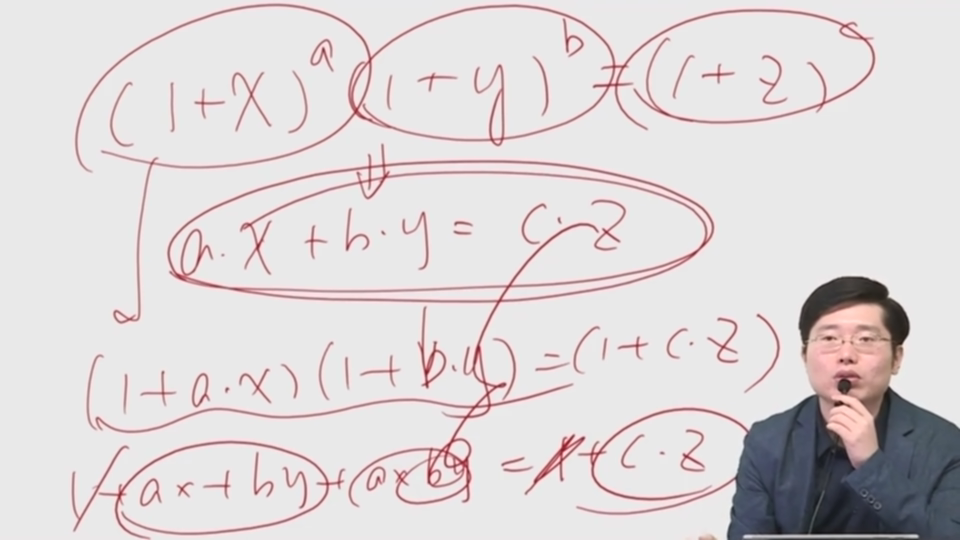 (1+x)^a (1+y)^b = (1+z)^c
a·x + b·y = c·z
(1+a·x)(1+b·y) = (1+c·z)
1+ax+by+(ax by) = 1+c·z